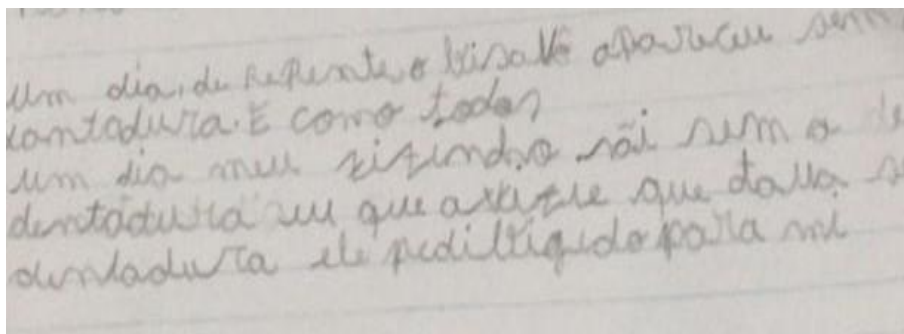 Um dia, de repente o bisavô apareceu sem
dentadura. E como todos
um dia meu vizindo sai sem a de
dentadura eu que que tava
dentadura ele pedi para mi